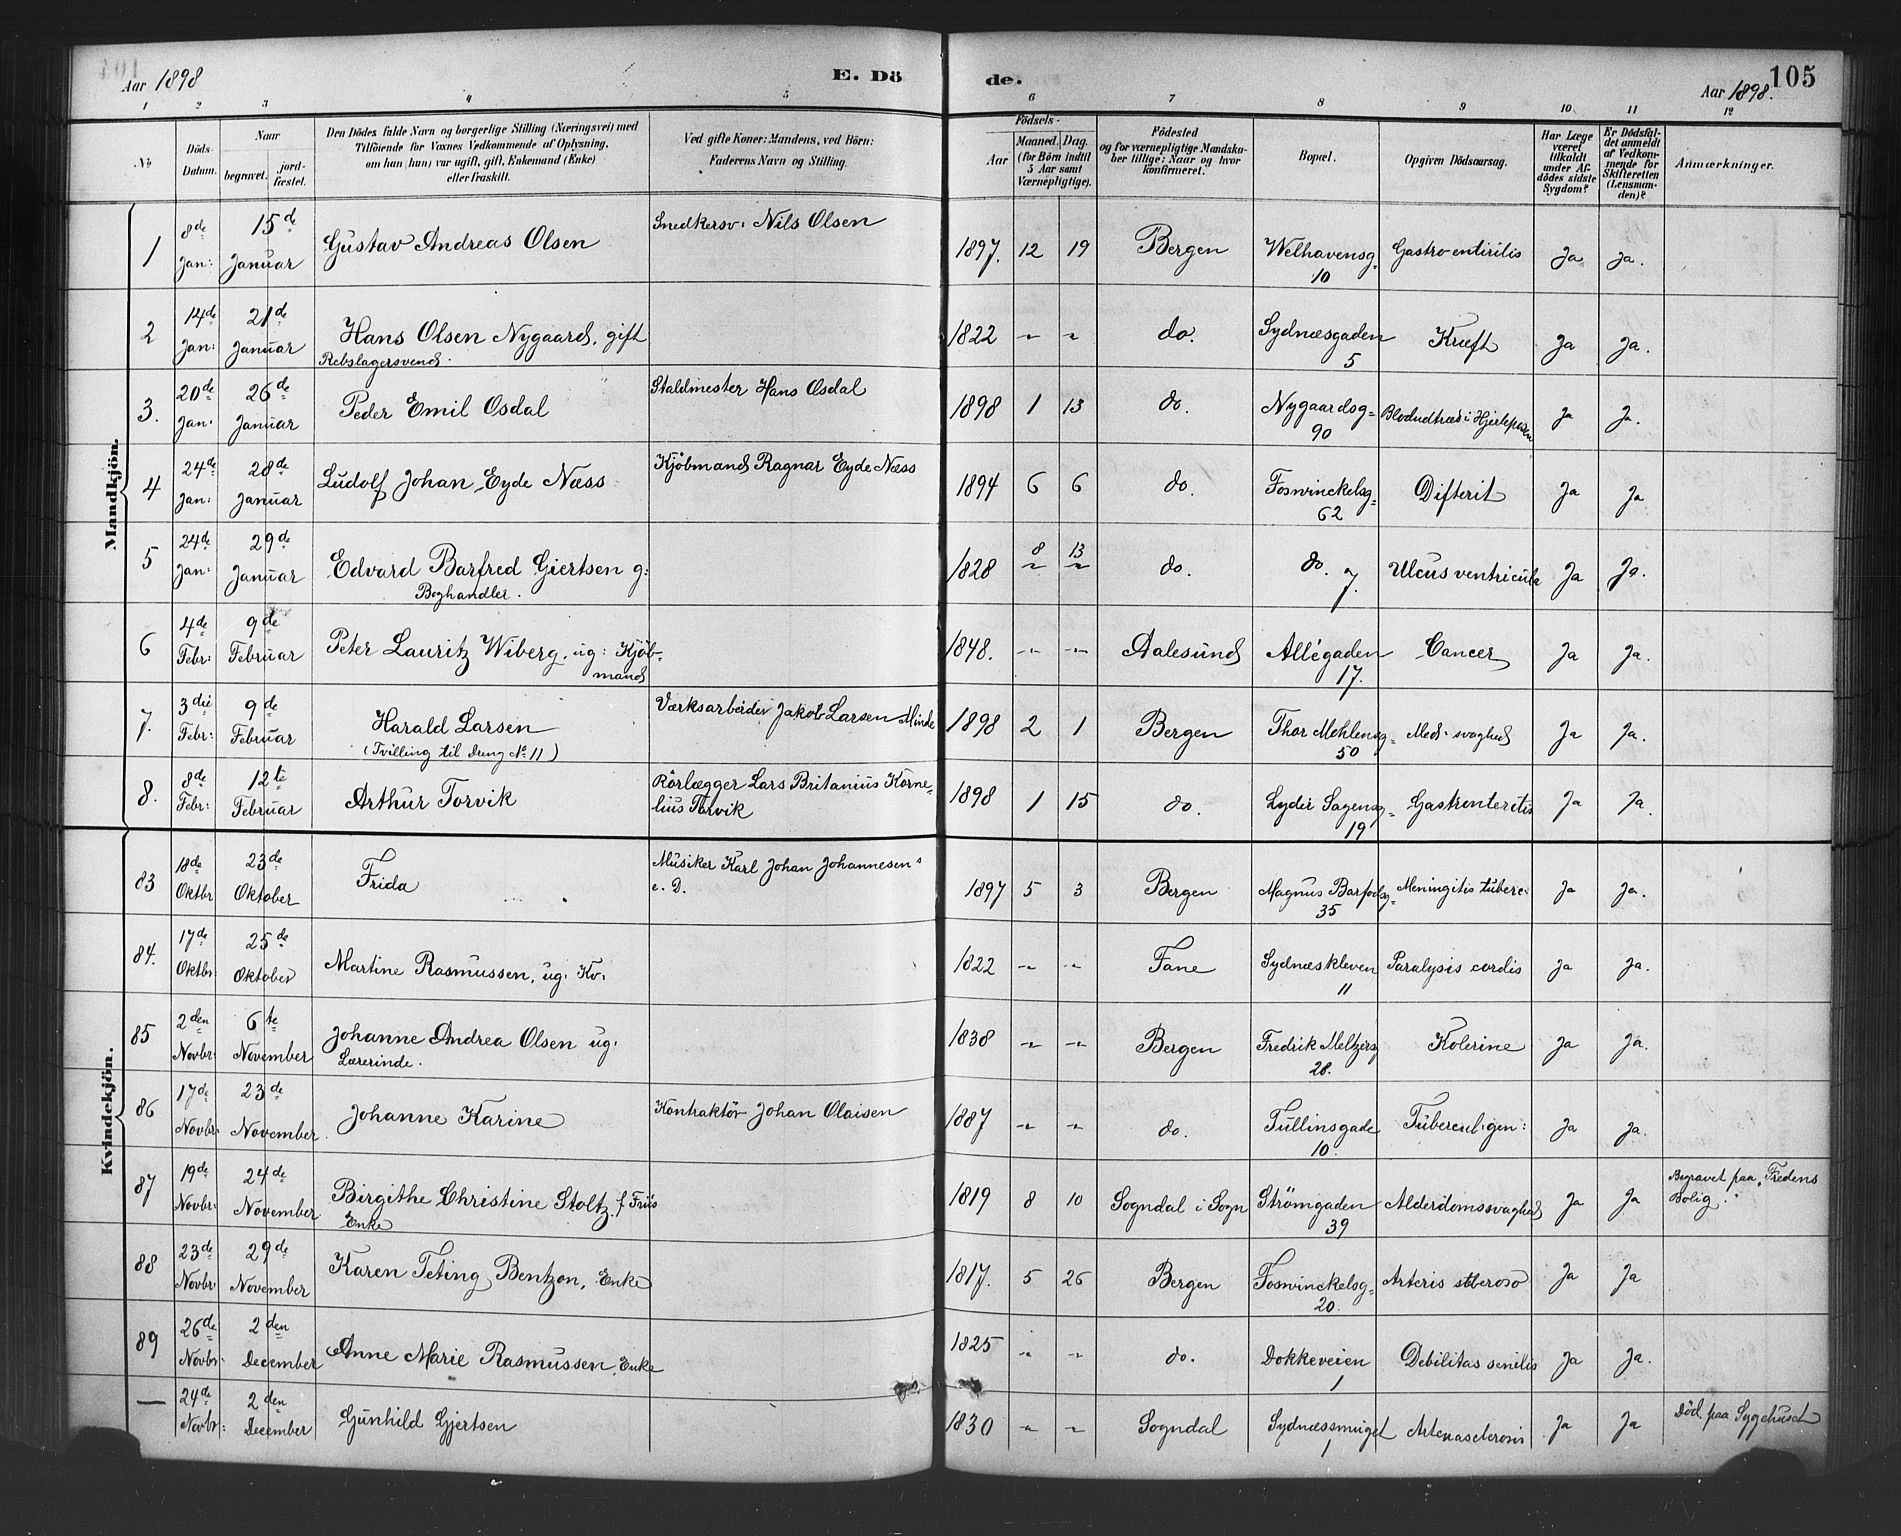 Aar 1898
E. Dö
de.
105
Aar 1898.
1 2 3 4 5 6 7 8 9 10 11 12
No
Döds-
Datum.
Naar
begravet.
jord-
fæstet.
Den Dödes fulde Navn og borgerlige Stilling (Næringsvei) med
Tilföiende for Voxnes Vedkommende af Oplysning,
om han (hun) var ugift, gift, Enkemand (Enke)
eller fraskilt.
Ved gifte Koner: Mandens, ved Börn:
Faderens Navn og Stilling.
Födsels-
Aar
Maaned. Dag.
(for Börn indtil
5 Aar samt
Værnepligtige).
Födested
og for værnepligtige Mandska-
ber tillige: Naar og hvor
konfirmeret.
Bopæl.
Opgiven Dödsaarsag.
Har Læge
været
tilkaldt
under Af-
dödes sidste
Sygdom?
Er Dödsfal-
det anmeldt
af Vedkom-
mende for
Skifteretten
(Lensman-
den)?
Anmærkninger.
Mandkjön.
1 8de Jan: 15de Januar Gustav Andreas Olsen Snedkersv: Nils Olsen 1897. 12 19 Bergen Welhavensg= 10 Gastro-entiritis Ja Ja.
2 14de Jan: 21de Januar Hans Olsen Nygaard, gift
Rebslagersvend. 1822 " " do. Sydnæsgaden 5 Kræft Ja Ja.
3. 20de Jan: 26de Januar Peder Emil Osdal Staldmester Hans Osdal 1898 1 13 do. Nygaardsg= 90 Blodudtræd i Hjerteposen Ja Ja.
4 24de Jan: 28de Januar Ludolf Johan Eyde Næss Kjöbmand Ragnar Eyde Næss 1894 6 6 do. Fosvinckelsg= 62 Difterit Ja Ja
5 24de Jan: 29de Januar Edvard Barfred Giertsen g:
Boghandler. 1828 8 13 " " do. do. 7. Ulcus ventricula Ja Ja.
6 4de Febr: 9de Februar Peter Lauritz Wiberg, ug: Kjöb-
mand 1848. " " Aalesund Allégaden 17. Cancer Ja Ja.
7. 3die Febr: 9de Februar Harald Larsen
(Tvilling til Dreng No 11) Værksarbeider Jakob Larsen Minde 1898 2 1 Bergen Thor Mehlensg= 50 Med. svaghed Ja Ja.
8. 8de Febr: 12te Februar Arthur Torvik Rörlægger Lars Britanius Korne=
lius Torvik 1898 1 15 do. Lyder Sagensg= 19 Gastrenteritis Ja Ja.
Kvindekjön.
83 18de Oktbr 23de Oktober Frida Musiker Karl Johan Johannesens
e. D. 1897 5 3 Bergen Magnus Barfodsg= 35 Meningitis tuberc: Ja Ja.
84. 17de Oktbr 25de Oktober Martine Rasmussen, ug. Kv: 1822 " " Fane Sydnæskleven 11 Paralysis cordis Ja Ja.
85 2den Novbr: 6te November Johanne Andrea Olsen ug.
Lærerinde. 1838 " " Bergen Fredrik Meltzersg 28. Kolerine Ja Ja.
86 17de Novbr: 23de November. Johanne Karine Kontraktör Johan Olaisen 1887 " " do. Tullinsgade 10. Tubercul. gen: Ja Ja.
87 19de Novbr: 24de November Birgithe Christine Stoltz f. Friis
Enke 1819 8 10 Sogndal i Sogn Strömgaden 39 Alderdomssvaghed Ja Ja Begravet paa "Fredens
Bolig."
88 23de Novbr: 29de November Karen Teting Bentzon, Enke 1817. 5 26 Bergen Fosvinckelsg= 20. Arteris Ja Ja
89 26de Novbr: 2den December Anne Marie Rasmussen, Enke 1825 " " do. Dokkeveien 1 Debilitas senilis Ja Ja.
— 24de Novbr: 2den December Gunhild Gjertsen 1830 " " Sogndal Sydnæssmuget 1 Ja Ja Död paa Sygehuset